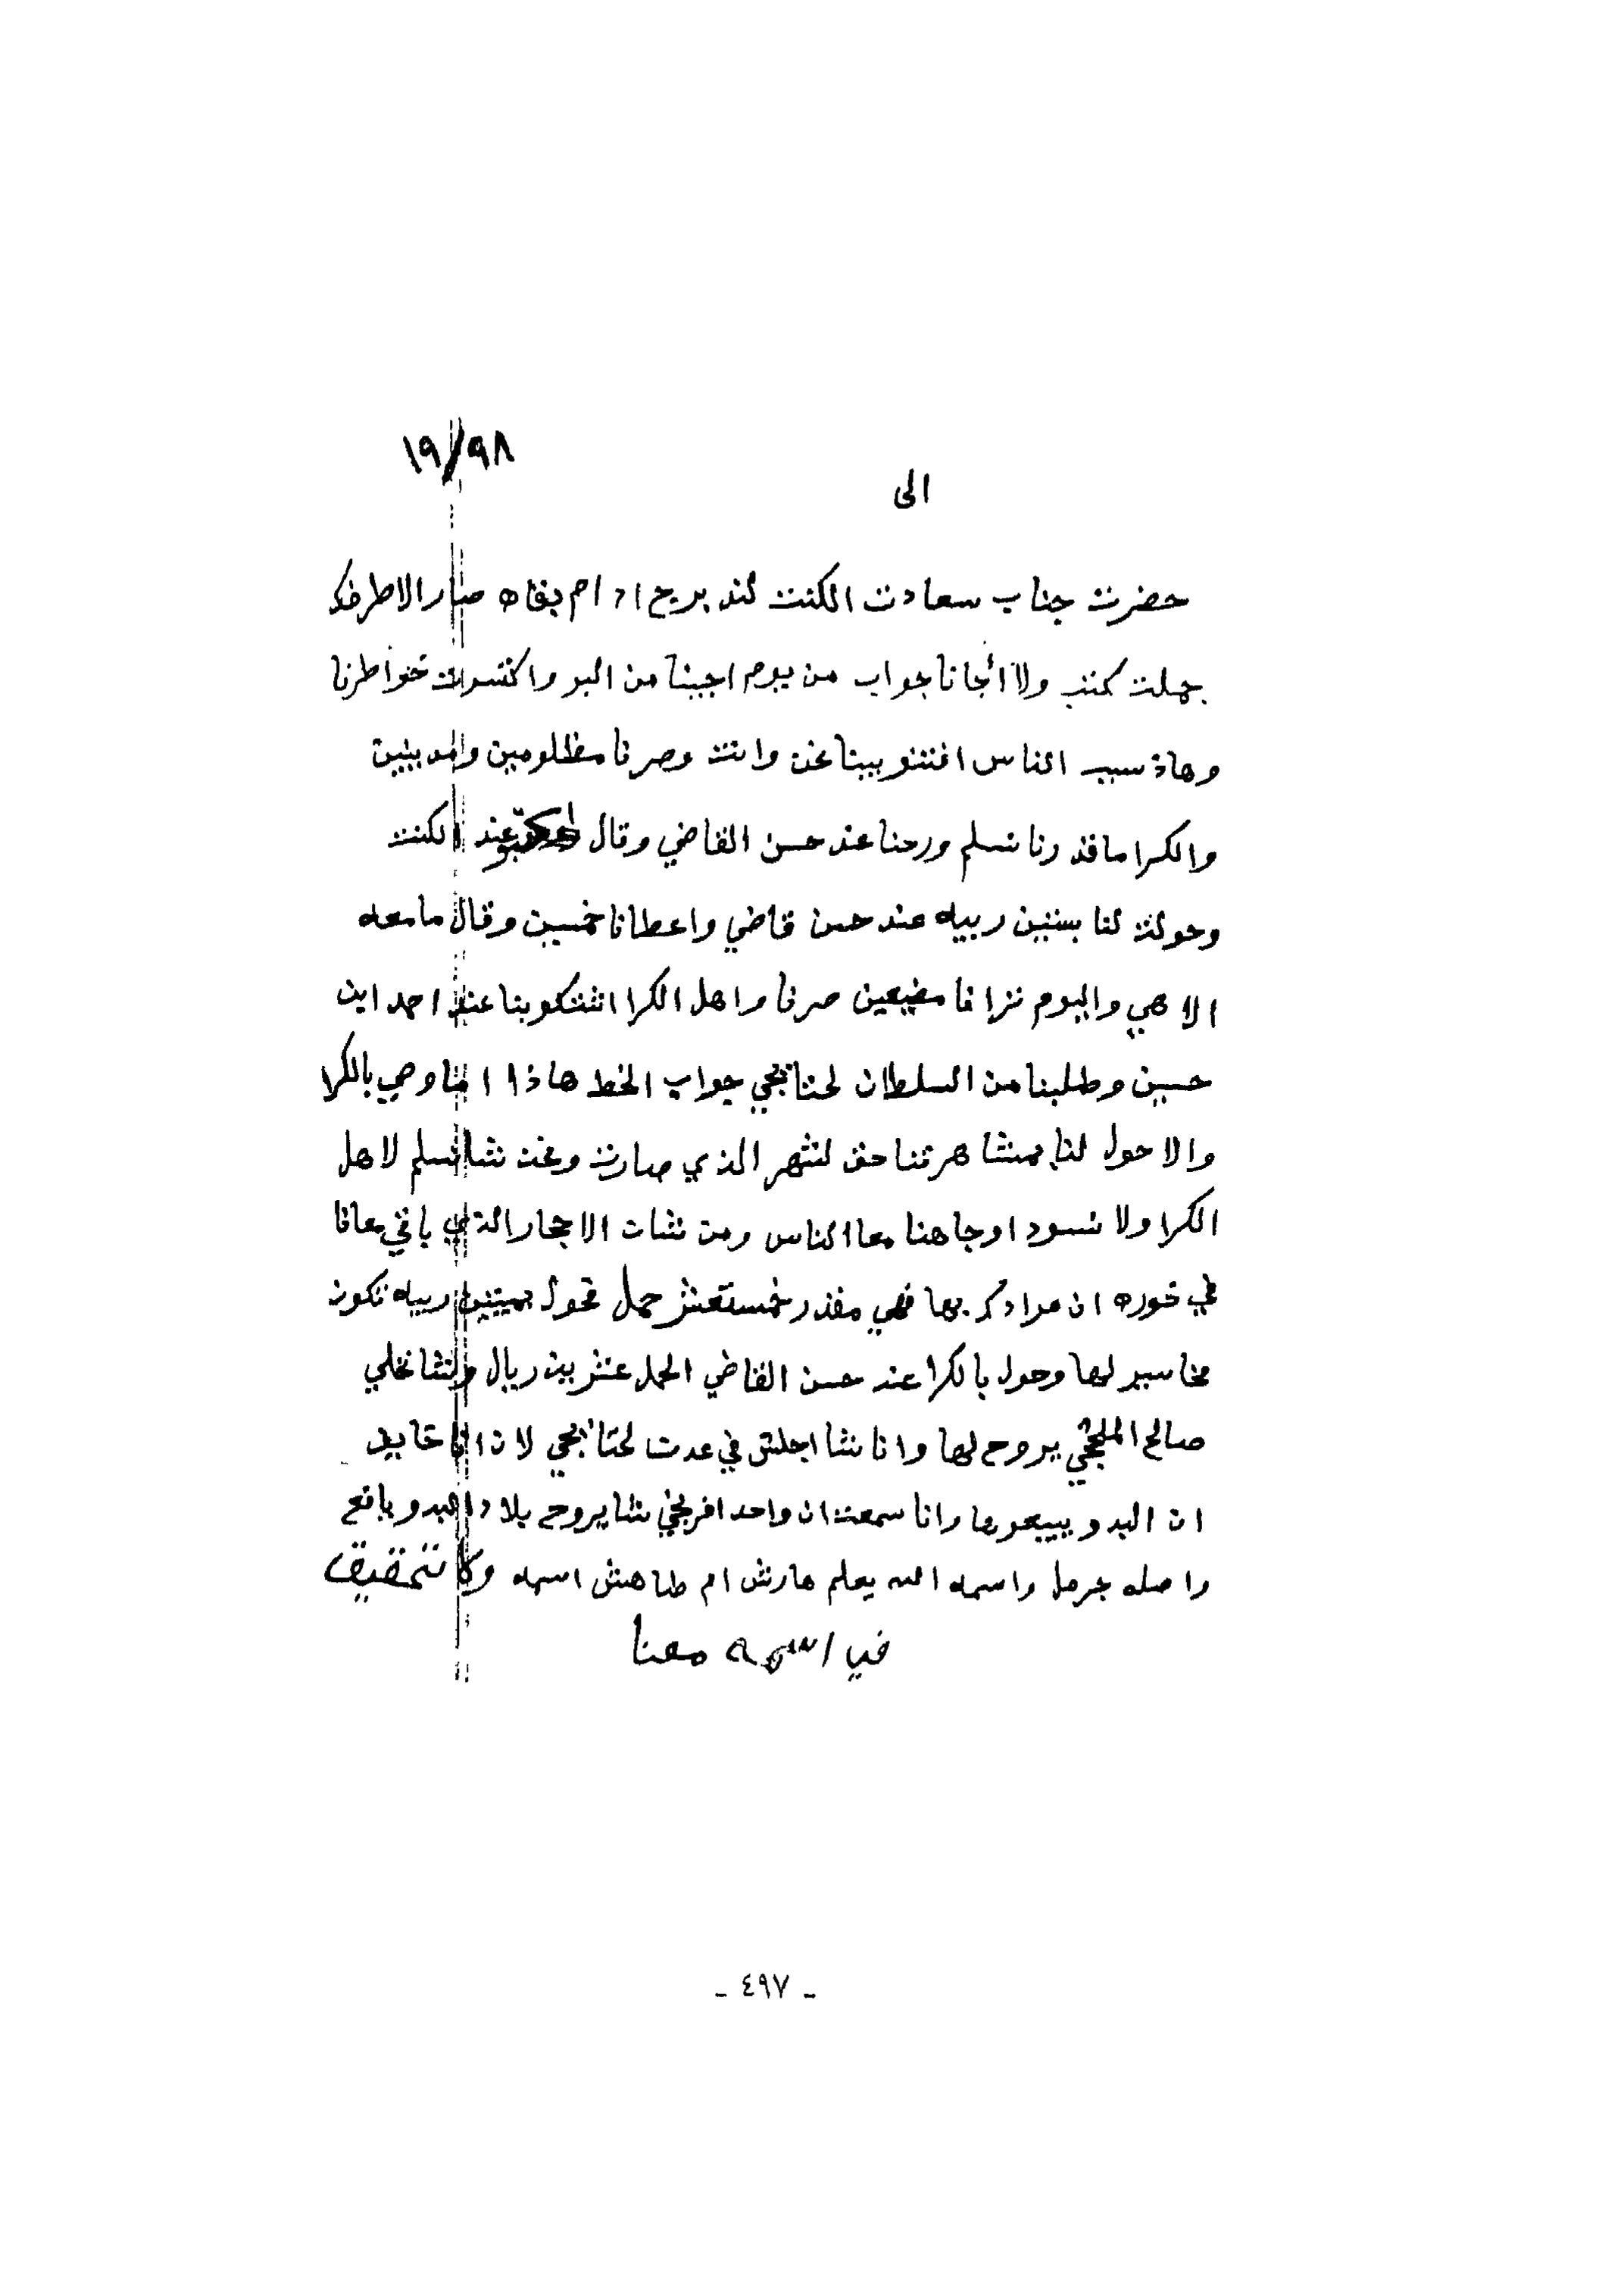 ١٩/٩٨
الى
حضرت جناب سعادت الكنت لندبريح ادام بقاه صار الاطرفك
جملت كتب ولا انجانا جواب من يوم اجينا من البر واكتسرت خواطرنا
وهاذ سبب الناس افتنو بيننا نحن وانت وصرنا مظلومين ومديينين
والكرا ما قدرنا نسلم ورحنا عند حسن القاضي وقال عند الكنت
وحولت لنا بستين ربيه عند حسن قاضي واعطانا خمسين وقال ما معه
الا هي واليوم ترانا مضيعين صرنا واهل الكرا اشتكو بنا عند احمد ابن
حسين وطلبنا من السلطان لحتا يجي جواب الخط هاذا اما وصي بالكرا
والا حول لنا بمشاهرتنا حق لشهر الذي صارت ونحن نشا نسلم لاهل
الكرا ولا نسود اوجاهنا معا الناس ومن شات الاحجار الذي باقي معانا
في خوره ان مرادك بها فهي مقدر خمستعشر حمل تحول بميتين ربيه تكون
مخاسير لها وحول بالكرا عند حسن القاضي الحمل عشرين ريال ونشا نخلي
صالح الملججي يروح لها وانا نشا اجلس في عدت لحتا يجي لان انا خايف
ان البدو يبيعوها وانا سمعت ان واحد افرنجي نشا يروح بلاد البدو يافع
واصله جرمل واسمه الله يعلم هارش ام طاهش اسمه وكا نتحقيق
في اسمه معنا
- ٤٩٧ -